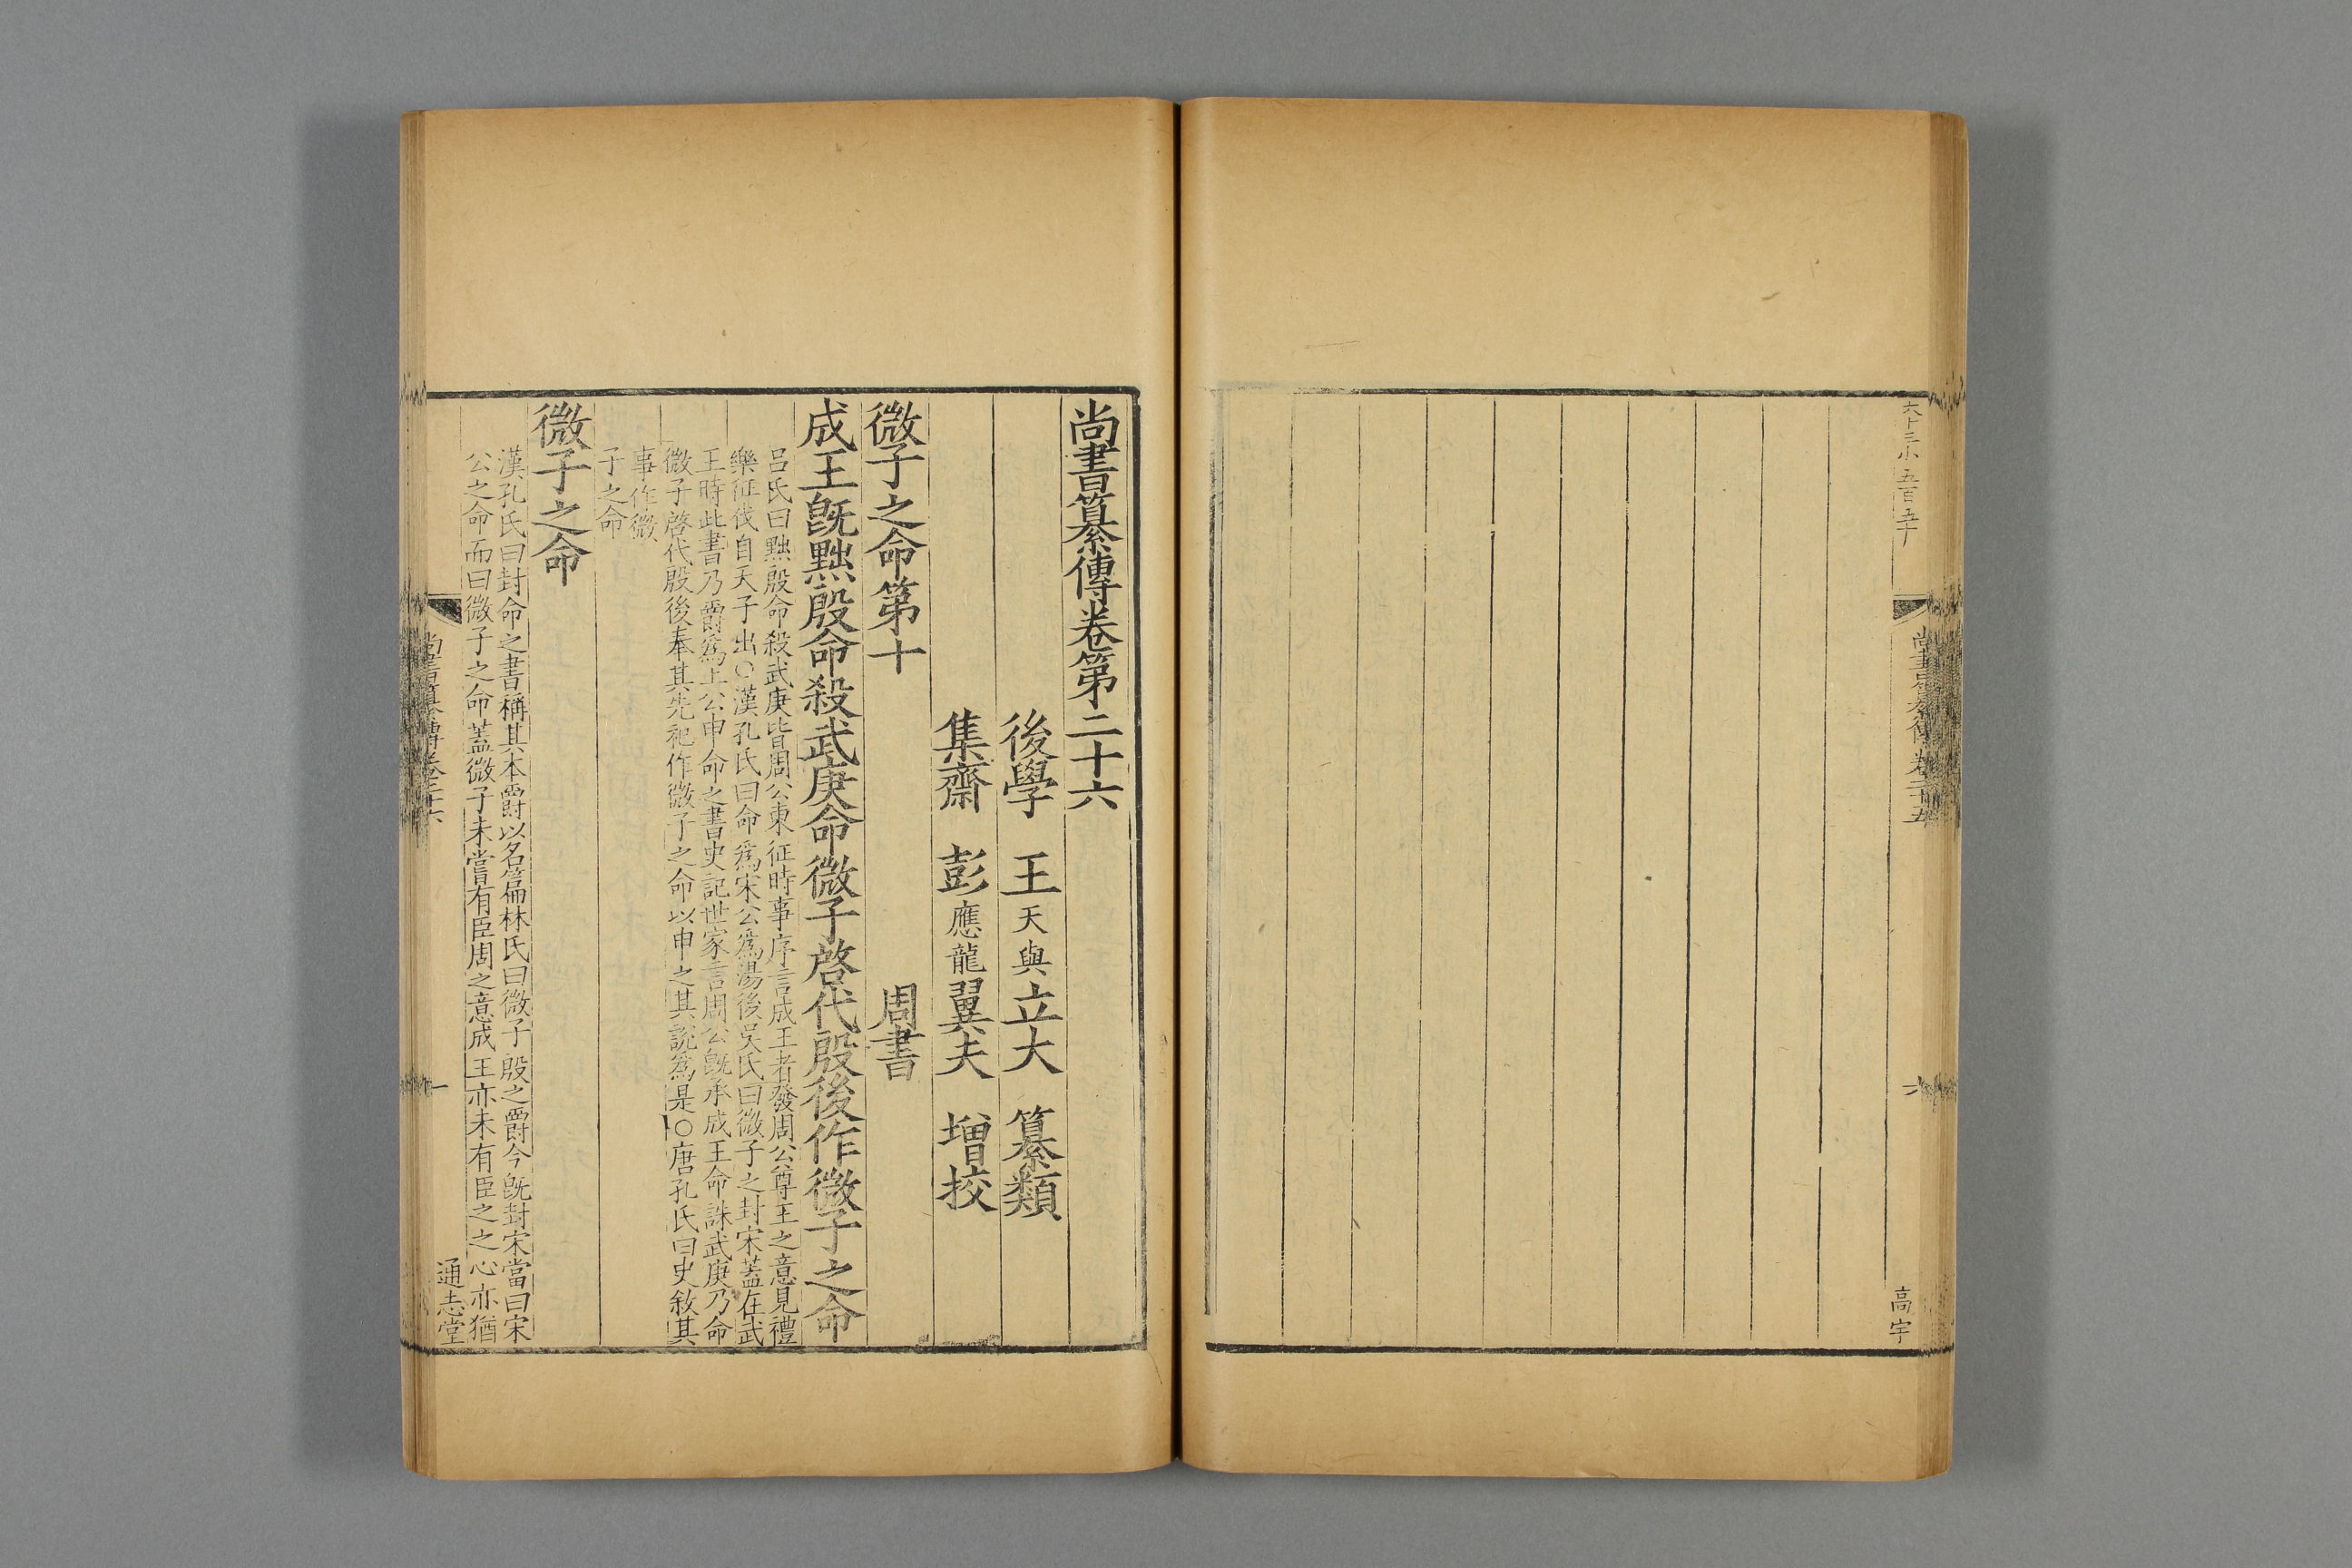 六十三小五百五十
尚書纂傳卷二十五
六
高宇
尚書纂傳卷第二十六
後學 王天與立大 纂類
集齋 彭應龍翼夫 增挍
微子之命第十 周書
成王旣黜殷命殺武庚命微子啓代殷後作微子之命
呂氏曰黜殷命殺武庚皆周公東征時事序言成王者發周公尊王之意見禮
樂征伐自天子出○漢孔氏曰命爲宋公爲湯後吳氏曰微子之封宋蓋在武
王時此書乃爵爲上公申命之書史記世家言周公旣承成王命誅武庚乃命
微子啓代殷後奉其先祀作微子之命以申之其說爲是○唐孔氏曰史敘其
事作微
子之命
微子之命
漢孔氏曰封命之書稱其本爵以名篇林氏曰微子殷之爵今旣封宋當曰宋
公之命而曰微子之命蓋微子未嘗有臣周之意成王亦未有臣之之心亦猶
尚書纂傳卷二十六
一
通志堂